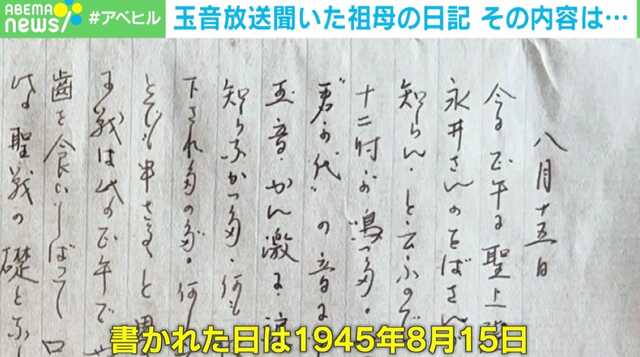 ABEMA news/ #アベヒル
玉音放送聞いた祖母の日記 その内容は…
八月十五日
今日正午に聖上
永井さんのをばさん
知らん・と云ふので
十二時が鳴つた。
"君が代"の音に
玉音・かん激に
知らなかつた・何も
下され
と思
戦は此の正午で
歯を食いしばって
此の聖戦の礎とな
書かれた日は1945年8月15日